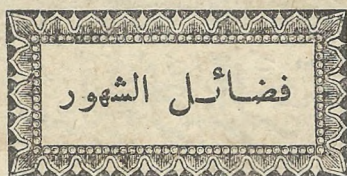 فضائل الشهور